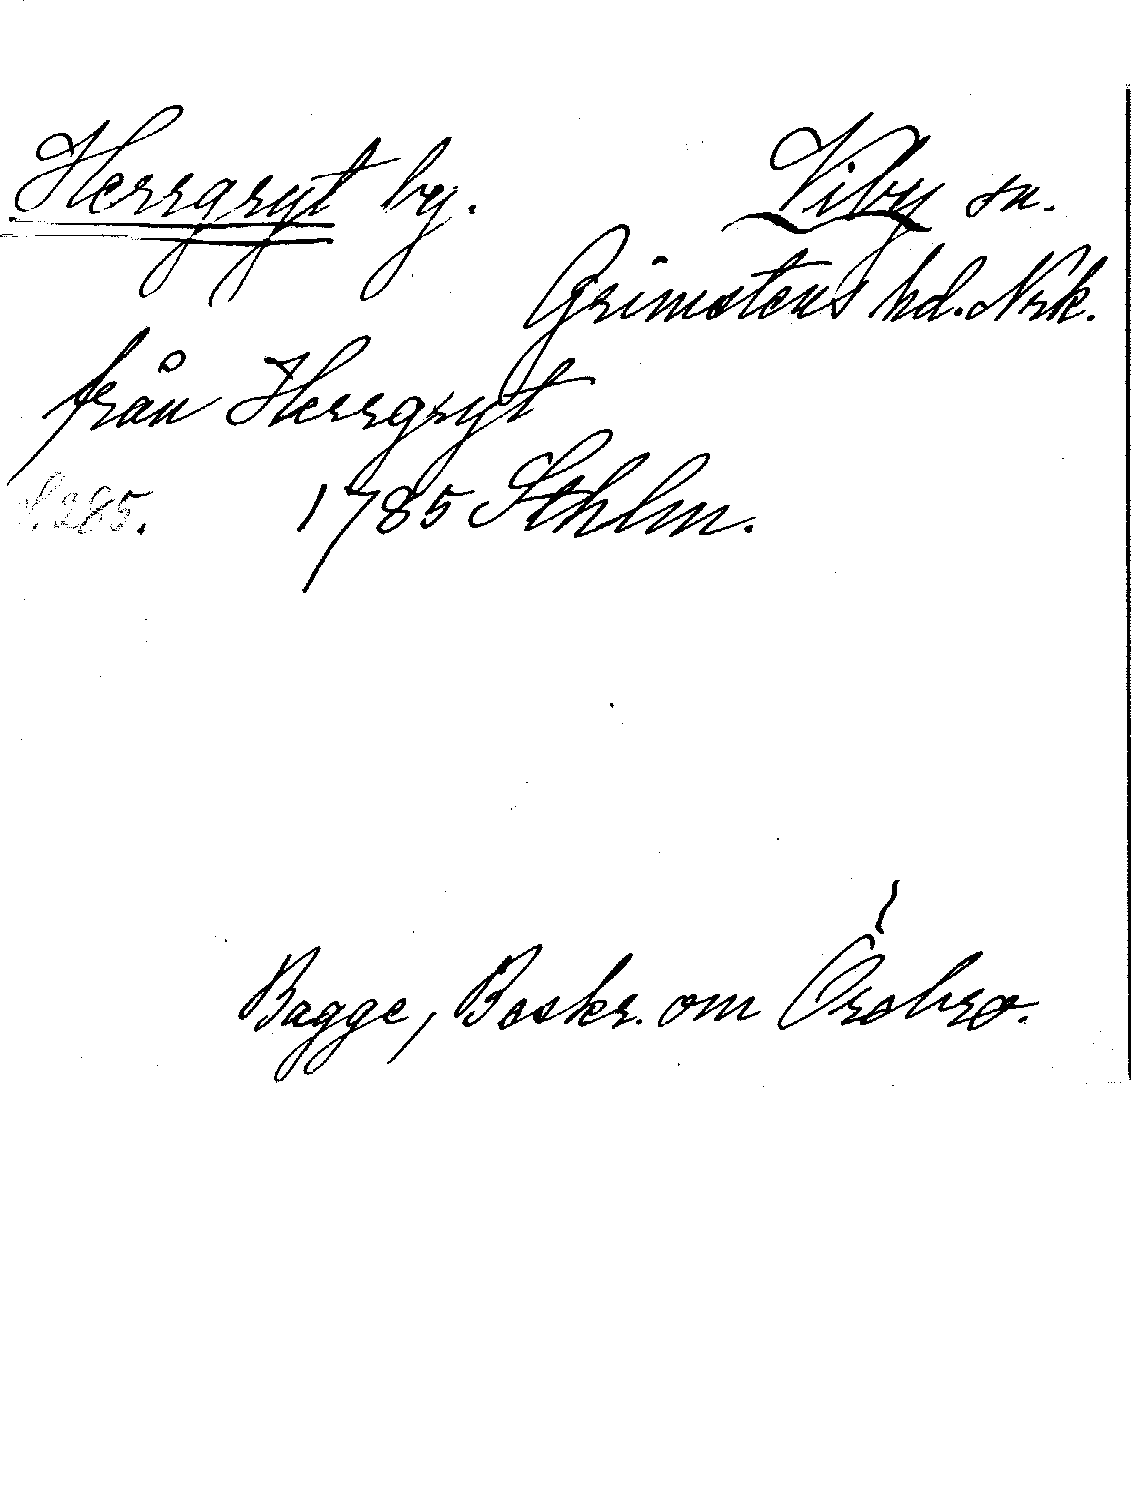 Herrgryt by. Viby sn.
Grimstens hd. Nrk.
från Herrgryt
S. 285. 1785 Sthlm.
Bagge, Beskr. om Örebro.